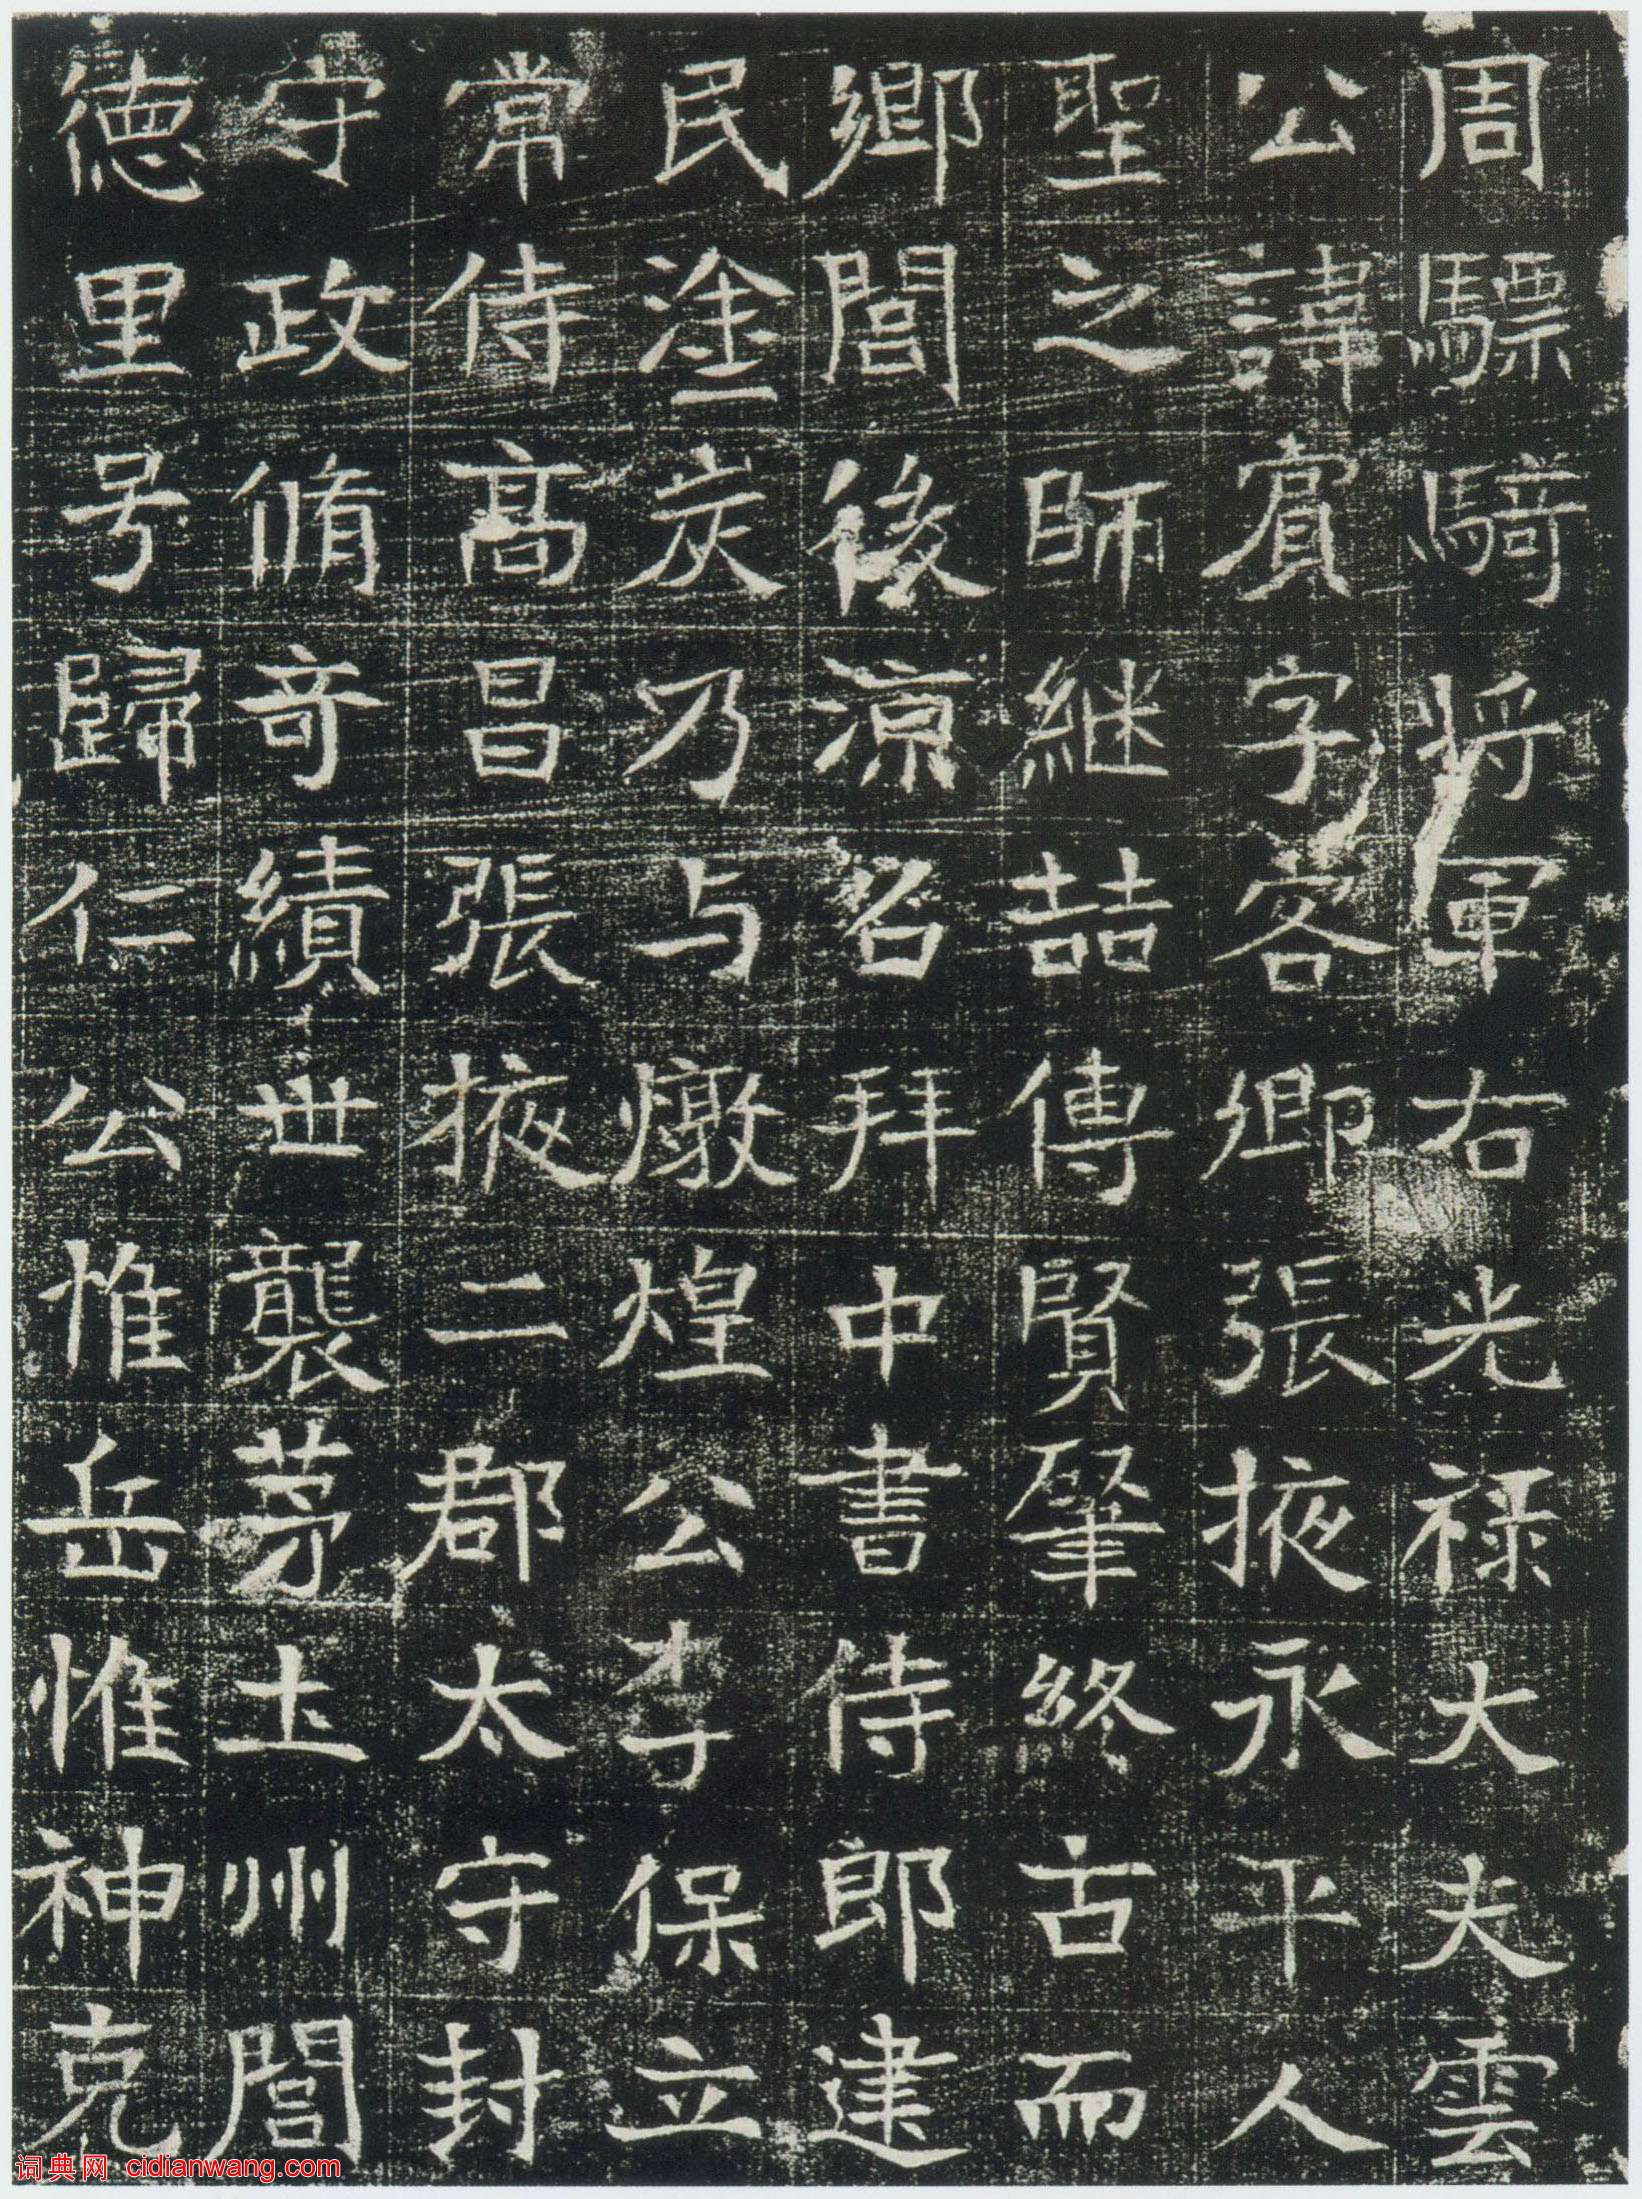 周驃騎將軍右光祿大夫雲
公諱賓字客卿張掖永平人
聖之師継喆傳賢肇終古而
鄉閭後涼召拜中書侍郎建
民塗炭乃与燉煌公李保立
常侍高昌張掖二郡太守封
守政脩竒績世襲茅土州閭
德里号歸仁公惟岳惟神克
词典网 cidianwang.com